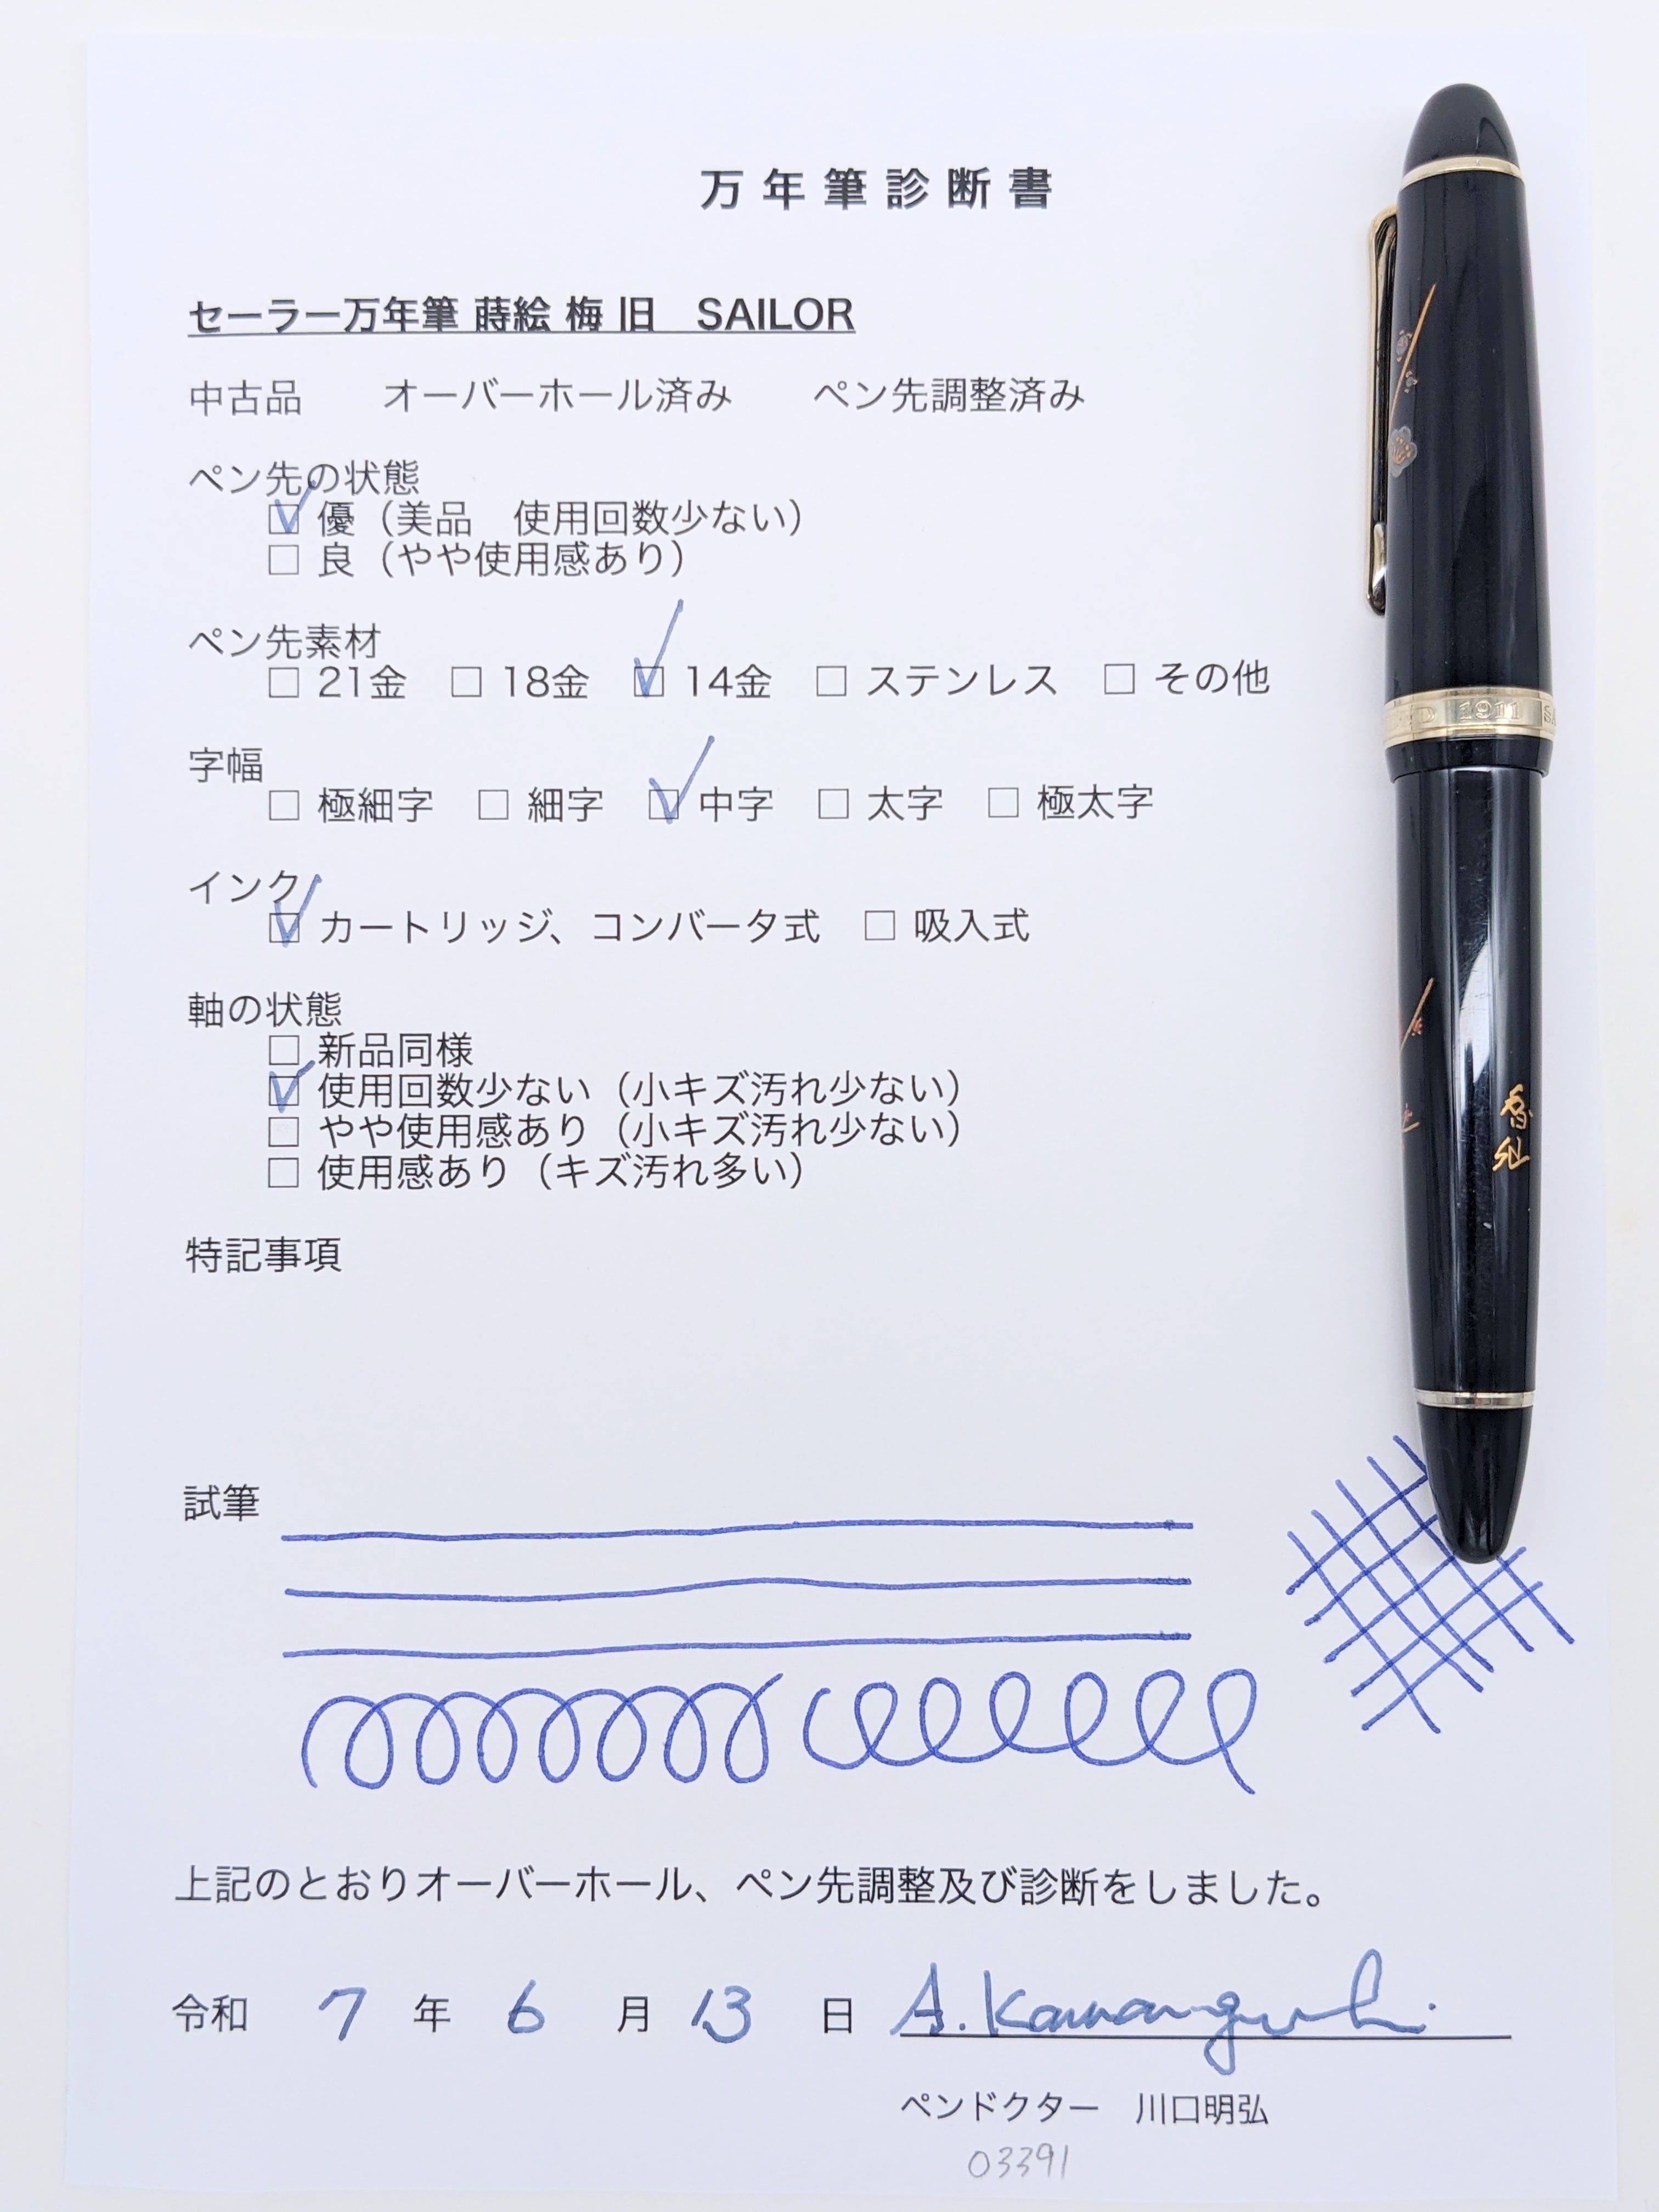 万年筆診断書
セーラー万年筆 蒔絵 梅 旧　SAILOR
中古品　オーバーホール済み　ペン先調整済み
ペン先の状態
☑ 優（美品　使用回数少ない）
□ 良（やや使用感あり）
ペン先素材
□ 21金　□ 18金　☑ 14金　□ ステンレス　□ その他
字幅
□ 極細字　□ 細字　☑ 中字　□ 太字　□ 極太字
インク
☑ カートリッジ、コンバータ式　□ 吸入式
軸の状態
□ 新品同様
☑ 使用回数少ない（小キズ汚れ少ない）
□ やや使用感あり（小キズ汚れ少ない）
□ 使用感あり（キズ汚れ多い）
特記事項
試筆
上記のとおりオーバーホール、ペン先調整及び診断をしました。
令和 7 年 6 月 13 日 A. Kawaguchi
ペンドクター　川口明弘
03391
1911